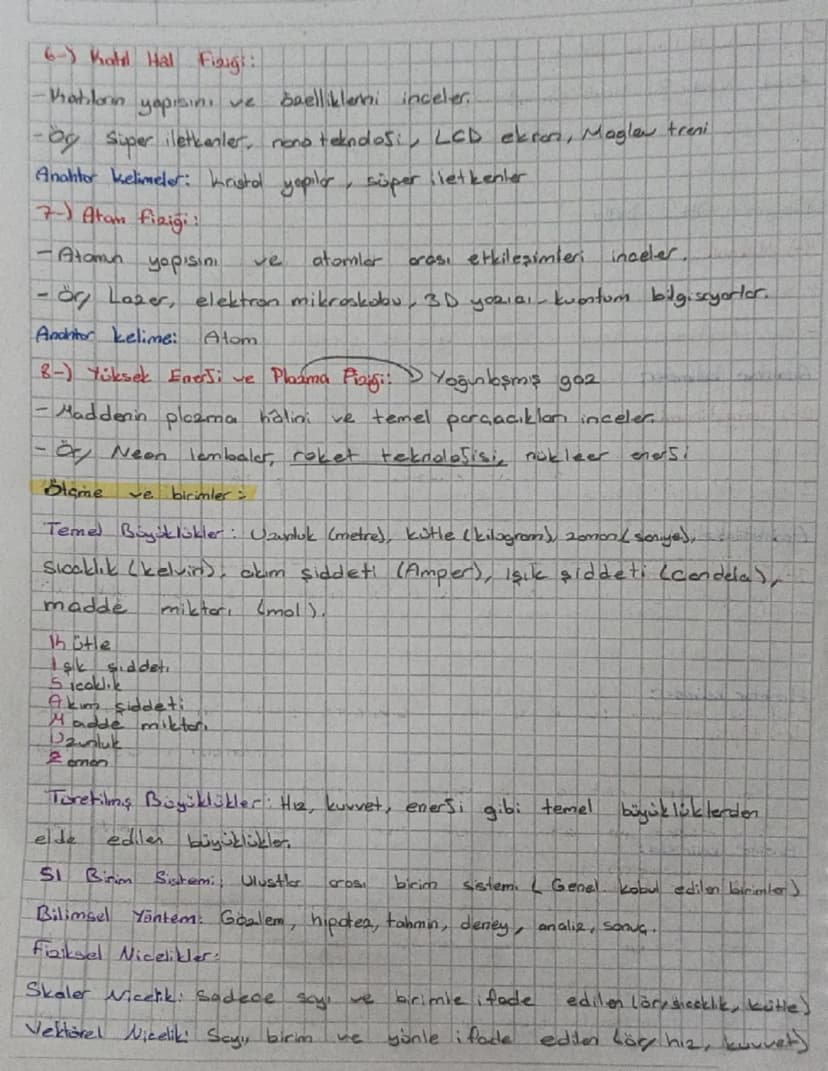 6-) Katı Hal Fiziği:
- Katıların yapısını ve özelliklerini inceler.
- Ör/ Süper iletkenler, nano teknoloji, LCD ekran, Maglev treni
Anahtar kelimeler: kristal yapılar, süper iletkenler
7-) Atom fiziği:
- Atomun yapısını ve atomlar arası etkileşimleri inceler.
- Ör/ Lazer, elektron mikroskobu, 3D yazıcı - kuantum bilgisayarlar.
Anahtar kelime: Atom
8-) Yüksek Enerji ve Plazma Fiziği: → Yoğunlaşmış gaz
- Maddenin plazma hâlini ve temel parçacıkları inceler.
- Ör/ Neon lambalar, roket teknolojisi, nükleer enerji
Ölçme ve birimler:
Temel Büyüklükler: Uzunluk (metre), kütle (kilogram), zaman (saniye),
sıcaklık (kelvin), akım şiddeti (Amper), Işık şiddeti (candela),
madde miktarı (mol).
Kütle
Işık şiddeti
Sıcaklık
Akım şiddeti
Madde miktarı
Uzunluk
Zaman
Türetilmiş Büyüklükler: Hız, kuvvet, enerji gibi temel büyüklüklerden
elde edilen büyüklükler.
SI Birim Sistemi: Uluslar arası birim sistemi (Genel kabul edilen birimler)
Bilimsel Yöntem: Gözlem, hipotez, tahmin, deney, analiz, sonuç.
Fiziksel Nicelikler:
Skaler Nicelik: Sadece sayı ve birimle ifade edilen (ör/ sıcaklık, kütle)
Vektörel Nicelik: Sayı, birim ve yönle ifade edilen (ör/ hız, kuvvet)